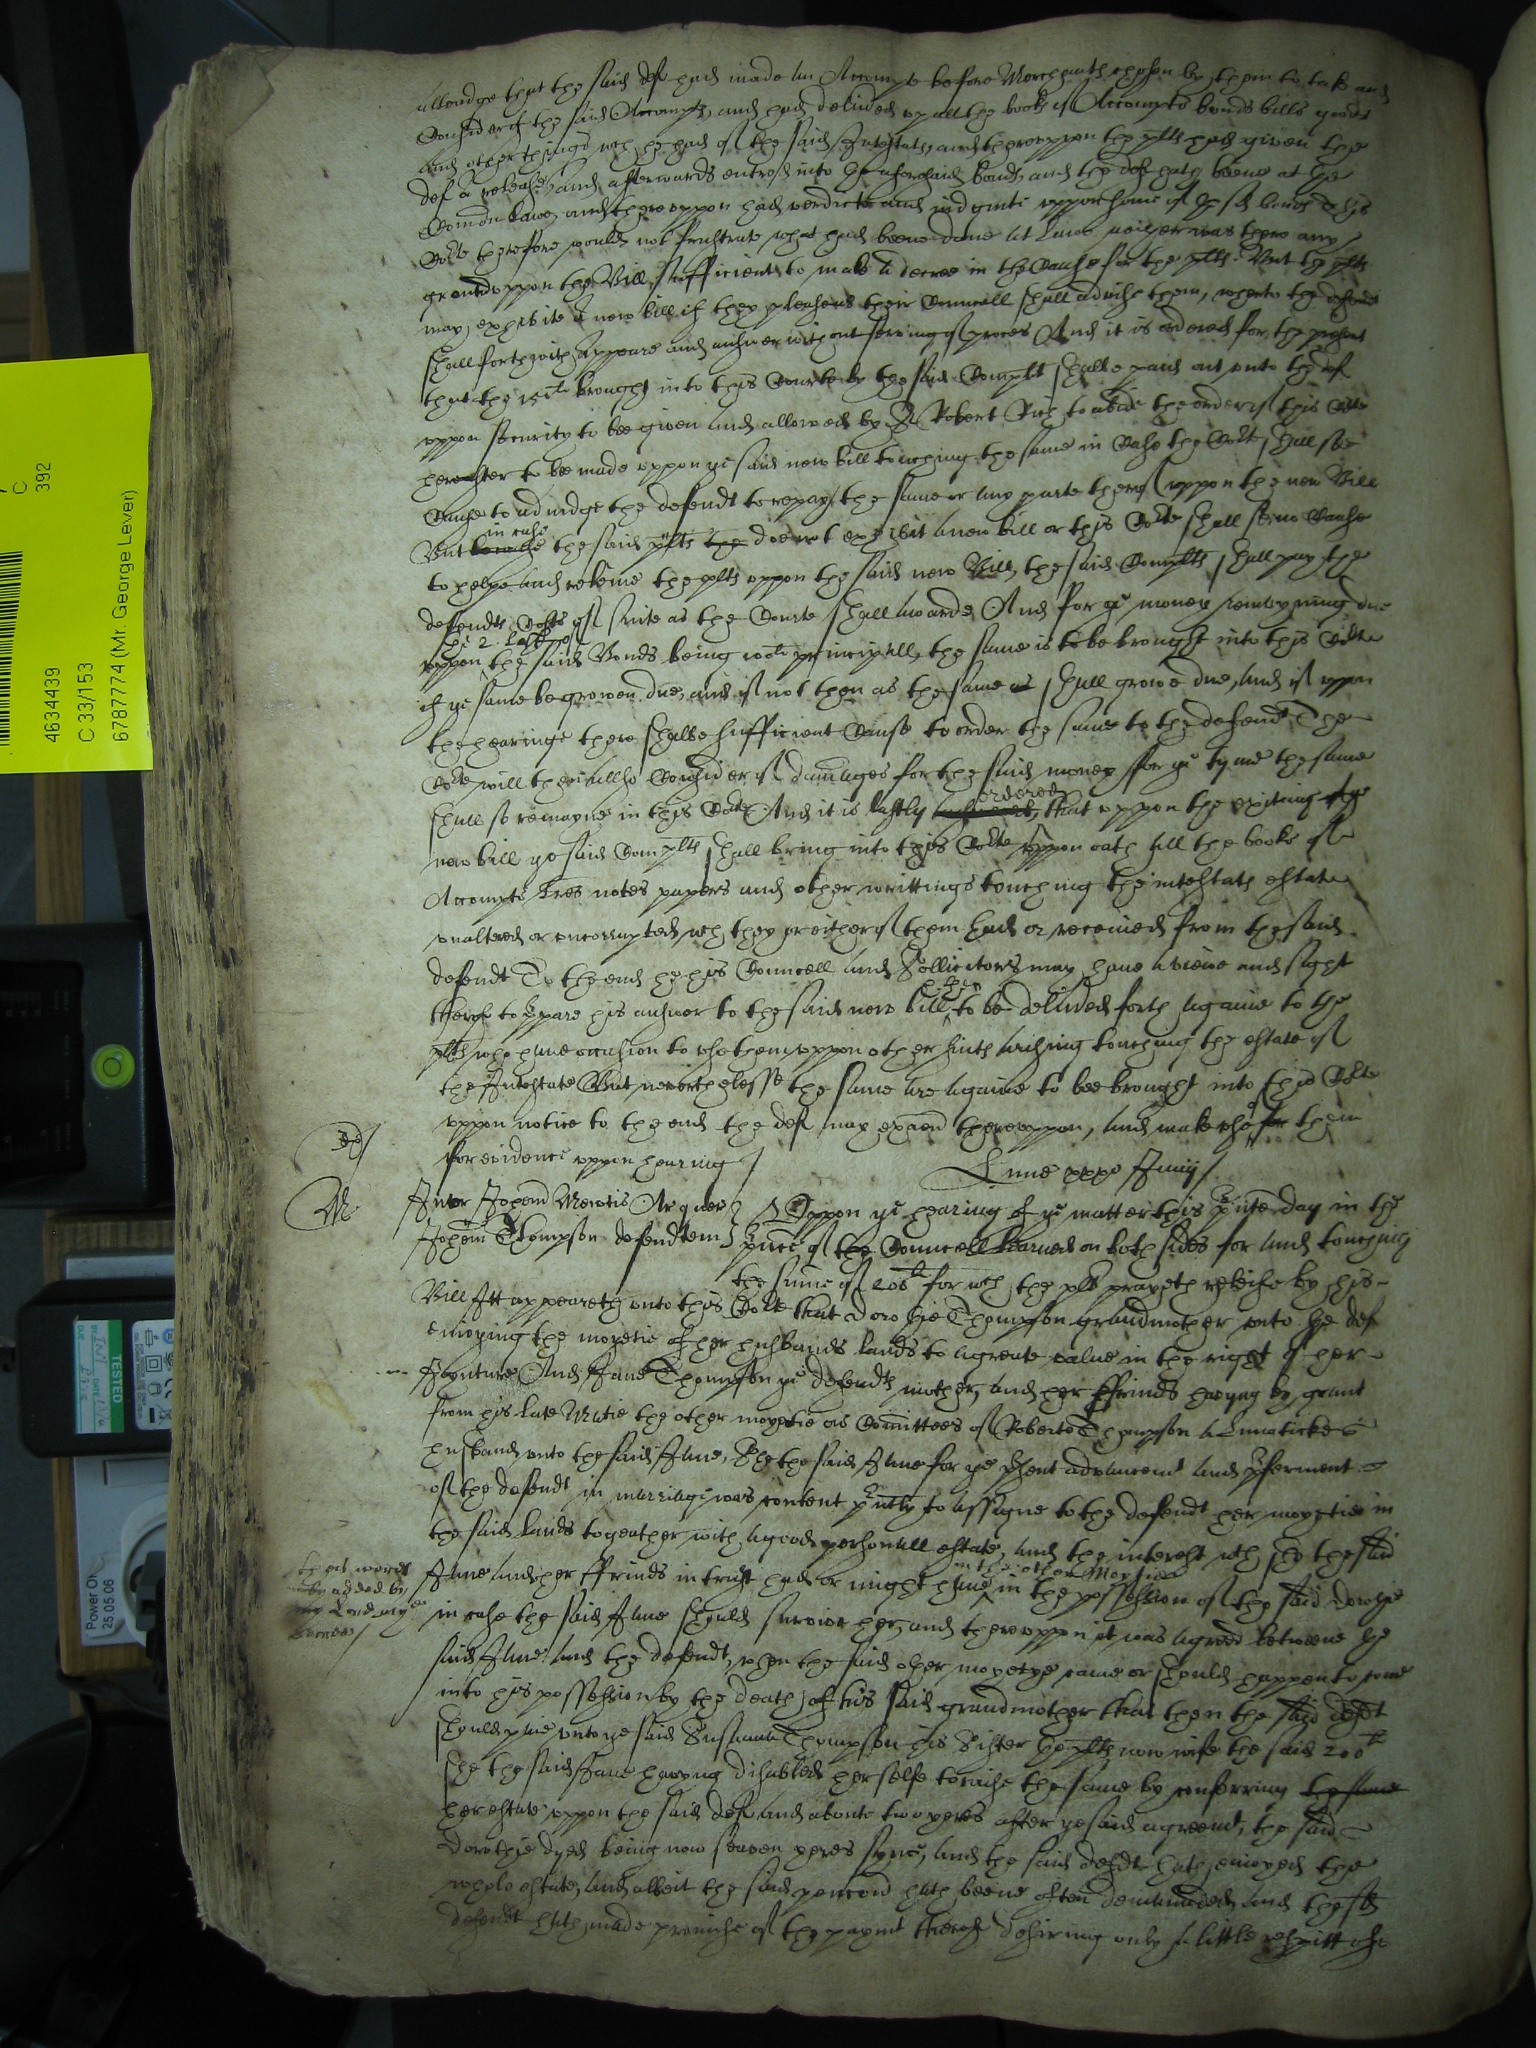 alleadge that the said def had made an Accompt before Merchants chosen by them to take and
Consider of the said Accompts, and had delivered up all the books of Accompts bonds bills goods
and other things wch he had of the said Intestats, and thereuppon the plts had given the
def a release, and afterwards entred into the aforesaid bonds, and the def hath beene at the
Comon Lawe, and thereuppon had verdicts and judgmts uppon some of the sd bonds This
Corte therefore would not frustrate what had beene done at Lawe neither was there any
ground uppon the Bill sufficient to make a decree in the Cause for the plts. But the plts
may exhibite a new bill if they please as their Councell shall advise them, whereto the defendt
shall forthwith Appeare and answer without serving of proces And it is ordered for the present
that the brought into this Courte by the said Complt shalbe paid out unto the def
uppon security to bee given and allowed by Sr Robert Rich to abide the order of this Corte
hereafter to be made uppon ye said new bill touching the same in Case the Corte shall see
Cause to adiudge the defendt to repay the same or any parte thereof uppon the new Bill
in case
But the said plts doe not exhibit a new bill or this Corte shall see no Cause
to helpe and releive the plts uppon the said new Bill, the said Complts shall pay the
defendts Costs of suite as the Courte shall awarde, And for ye money remayning due
uppon the said Bonds being principall, the same is to be brought into this Corte
if ye same be growen due, and if not then as the same shall growe due, and if uppon
the hearinge there shalbe sufficient Cause to order the same to the defendt, The
Corte will then allso Consider of damages for the said money for ye tyme the same
ordered
shall so remayne in this Corte And it is lastly that uppon the exiting the
new bill ye said Complts shall bring into this Corte uppon oath all the books of
Accompts Lres notes papers and other writtings touching the intestats estate
unaltered or uncorrupted wch they or either of them had or received from the said
defendt To the end he his Councell and Sollicitors may have a viewe and sight
thereof to ppare his answer to the said new bill, to be delivered forth againe to the
plts who have occasion to use them uppon other suits arising touching the estate of
the Intestate But neverthelesse the same are againe to bee brought into this Corte
uppon notice to the end the def may examine thereuppon, and make use of them
for evidence uppon hearing
Lune xxxo Junij
Inter Johem Meotis Ar quer Uppon ye hearing of ye matter this pnte day in the
Johem Thompson defendtem pnce of the Councell learned on both sides for and touching
the sume of 200li for wch the plt prayeth releife by his
Bill Itt appeareth unto this Corte that Dorothie Thompson grandmother unto the def
enioying the moyetie of her husbands lands to a greate value in the right of her
Joynture And Jane Thompson ye defendts mother, and her ffrinds having by grant
from his late Matie the other moyetie as Comittees of Roberte Thompson a Lunaticke
husband unto the said Jane, She the said Jane for ye psent advancemt and pferment
of the defendt in marriage was content prtly to assigne to the defendt her moyetie in
the said lands togeather with a good personall estate, and the interest wch she the said
in the other Moytie
Jane and her ffrinds in trust had or might have in the possession of the said Dorothye
in case the said Jane should survive her, and thereuppon it was agreed betweene the
said Jane and the defendt, when the said other moyetye came or should happen to come
into his possession by the death of his said grandmother that then the said defdt
should paie unto ye said Susanna Thompson his Sister the plts now wife the said 200li
she the said Jane having disabled her selfe to raise the same by conferring the same
her estate uppon the said def and aboute two yeres after ye said agreemt, the said
Dorothie dyed being now seaven yeres synce, and the said defdt hath enioyed the
whole estate, and albeit the said hath beene often demaunded and the sd
defendt hath made promise of the paymt thereof desiring only a little respitt
theis words
added by
my Lord
4634439
C 33/153
67877774 (Mr. George Lever)
C
392
TESTED
Power Or
25.05.06